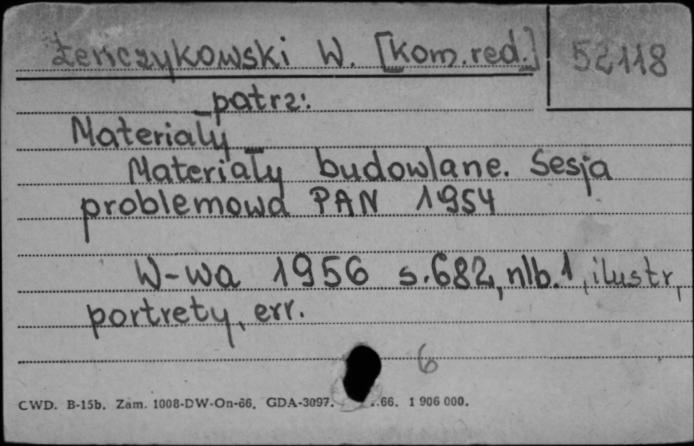 Żenczykowski W. [kom.red.] 52118
patrz:
Materiały
Materiały budowlane. Sesja
problemowa PAN 1954
W-wa 1956 s.682, nlb.1, ilustr,
portrety, err.
6
CWD. B-15b. Zam. 1008-DW-On-66. GDA-3097. .66. 1 906 000.